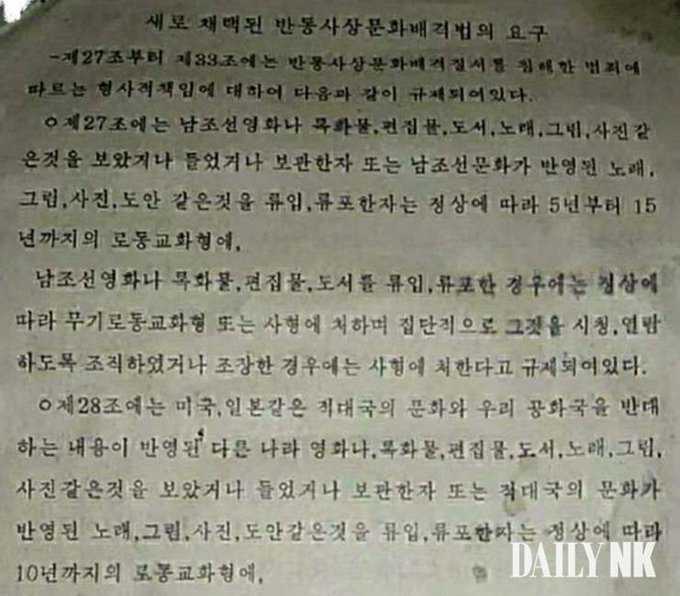 새로 채택된 반동사상문화배격법의 요구
-제27조부터 제33조에는 반동사상문화배격질서를 침해한 범죄에
따르는 형사적책임에 대하여 다음과 같이 규제되여있다.
○제27조에는 남조선영화나 록화물,편집물,도서,노래,그림,사진같
은것을 보았거나 들었거나 보관한자 또는 남조선문화가 반영된 노래,
그림,사진,도안 같은것을 류입,류포한자는 정상에 따라 5년부터 15
년까지의 로동교화형에,
남조선영화나 록화물,편집물,도서를 류입,류포한 경우에는 정상에
따라 무기로동교화형 또는 사형에 처하며 집단적으로 그것을 시청,열람
하도록 조직하였거나 조장한 경우에는 사형에 처한다고 규제되여있다.
○제28조에는 미국,일본같은 적대국의 문화와 우리 공화국을 반대
하는 내용이 반영된 다른 나라 영화나,록화물,편집물,도서,노래,그림,
사진같은것을 보았거나 들었거나 보관한자 또는 적대국의 문화가
반영된 노래,그림,사진,도안같은것을 류입,류포한자는 정상에 따라
10년까지의 로동교화형에,
DAILY NK